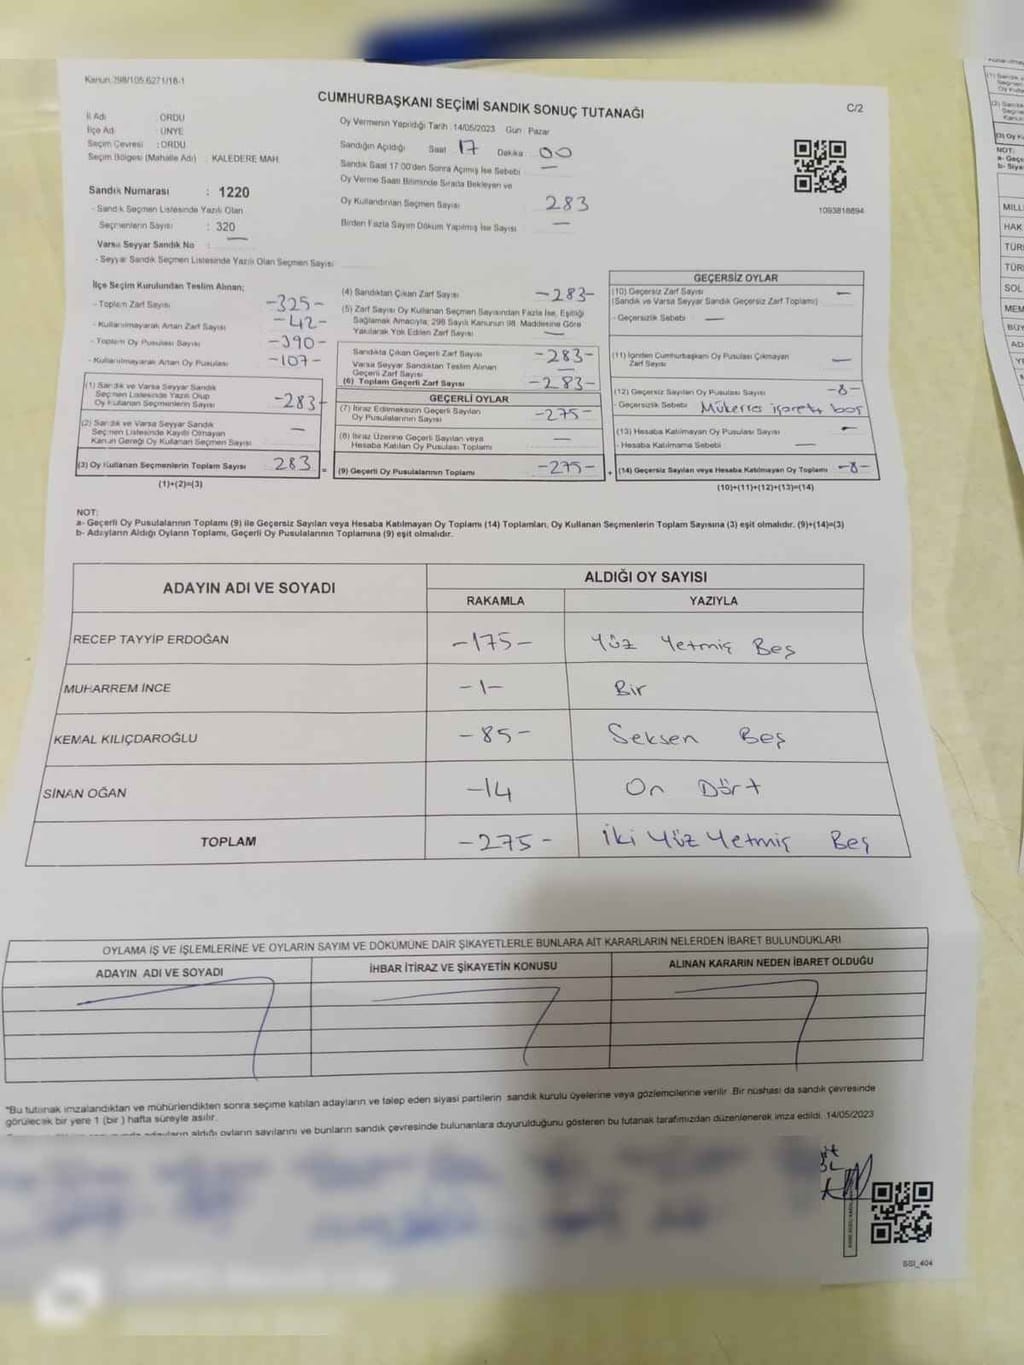 Kanun 298/105 6271/18-1
CUMHURBAŞKANI SEÇİMİ SANDIK SONUÇ TUTANAĞI
C/2
İl Adı : ORDU
İlçe Adı : ÜNYE
Seçim Çevresi : ORDU
Seçim Bölgesi (Mahalle Adı) : KALEDERE MAH.
Oy Vermenin Yapıldığı Tarih : 14/05/2023 Gün : Pazar
Sandığın Açıldığı Saat 17 Dakika 00
Sandık Saat 17:00'den Sonra Açılmış İse Sebebi —
Oy Verme Saati Bitiminde Sırada Bekleyen ve
Oy Kullandırılan Seçmen Sayısı 283
Birden Fazla Sayım Döküm Yapılmış İse Sayısı —
1093818894
Sandık Numarası : 1220
- Sandık Seçmen Listesinde Yazılı Olan
Seçmenlerin Sayısı : 320
Varsa Seyyar Sandık No : —
- Seyyar Sandık Seçmen Listesinde Yazılı Olan Seçmen Sayısı
İlçe Seçim Kurulundan Teslim Alınan;
- Toplam Zarf Sayısı -325-
- Kullanılmayarak Artan Zarf Sayısı -42-
- Toplam Oy Pusulası Sayısı -390-
- Kullanılmayarak Artan Oy Pusulası -107-
(1) Sandık ve Varsa Seyyar Sandık
Seçmen Listesinde Yazılı Olup
Oy Kullanan Seçmenlerin Sayısı -283-
(2) Sandık ve Varsa Seyyar Sandık
Seçmen Listesinde Kayıtlı Olmayan
Kanun Gereği Oy Kullanan Seçmen Sayısı —
(3) Oy Kullanan Seçmenlerin Toplam Sayısı 283 =
(1)+(2)=(3)
(4) Sandıktan Çıkan Zarf Sayısı -283-
(5) Zarf Sayısı Oy Kullanan Seçmen Sayısından Fazla İse, Eşitliği
Sağlamak Amacıyla, 298 Sayılı Kanunun 98. Maddesine Göre
Yakılarak Yok Edilen Zarf Sayısı —
Sandıkta Çıkan Geçerli Zarf Sayısı -283-
Varsa Seyyar Sandıktan Teslim Alınan
Geçerli Zarf Sayısı —
(6) Toplam Geçerli Zarf Sayısı -283-
GEÇERLİ OYLAR
(7) İtiraz Edilmeksizin Geçerli Sayılan
Oy Pusulalarının Sayısı -275-
(8) İtiraz Üzerine Geçerli Sayılan veya
Hesaba Katılan Oy Pusulası Toplamı —
(9) Geçerli Oy Pusulalarının Toplamı -275- +
GEÇERSİZ OYLAR
(10) Geçersiz Zarf Sayısı —
(Sandık ve Varsa Seyyar Sandık Geçersiz Zarf Toplamı)
- Geçersizlik Sebebi : —
(11) İçinden Cumhurbaşkanı Oy Pusulası Çıkmayan
Zarf Sayısı —
(12) Geçersiz Sayılan Oy Pusulası Sayısı -8-
- Geçersizlik Sebebi Mükerrer işaret, boş
(13) Hesaba Katılmayan Oy Pusulası Sayısı —
- Hesaba Katılmama Sebebi —
(14) Geçersiz Sayılan veya Hesaba Katılmayan Oy Toplamı -8-
(10)+(11)+(12)+(13)=(14)
NOT:
a- Geçerli Oy Pusulalarının Toplamı (9) ile Geçersiz Sayılan veya Hesaba Katılmayan Oy Toplamı (14) Toplamları, Oy Kullanan Seçmenlerin Toplam Sayısına (3) eşit olmalıdır. (9)+(14)=(3)
b- Adayların Aldığı Oyların Toplamı, Geçerli Oy Pusulalarının Toplamına (9) eşit olmalıdır.
ADAYIN ADI VE SOYADI
ALDIĞI OY SAYISI
RAKAMLA YAZIYLA
RECEP TAYYİP ERDOĞAN -175- Yüz Yetmiş Beş
MUHARREM İNCE -1- Bir
KEMAL KILIÇDAROĞLU -85- Seksen Beş
SİNAN OĞAN -14 On Dört
TOPLAM -275- İki Yüz Yetmiş Beş
OYLAMA İŞ VE İŞLEMLERİNE VE OYLARIN SAYIM VE DÖKÜMÜNE DAİR ŞİKAYETLERLE BUNLARA AİT KARARLARIN NELERDEN İBARET BULUNDUKLARI
ADAYIN ADI VE SOYADI İHBAR İTİRAZ VE ŞİKAYETİN KONUSU ALINAN KARARIN NEDEN İBARET OLDUĞU
*Bu tutanak imzalandıktan ve mühürlendikten sonra seçime katılan adayların ve talep eden siyasi partilerin sandık kurulu üyelerine veya gözlemcilerine verilir. Bir nüshası da sandık çevresinde
görülecek bir yere 1 (bir) hafta süreyle asılır.
adayların aldığı oyların sayılarını ve bunların sandık çevresinde bulunanlara duyurulduğunu gösteren bu tutanak tarafımızdan düzenlenerek imza edildi. 14/05/2023
SSI_404
NOT:
MILL
HAK
TÜR
TÜRI
SOL
MEM
BÜY
AD